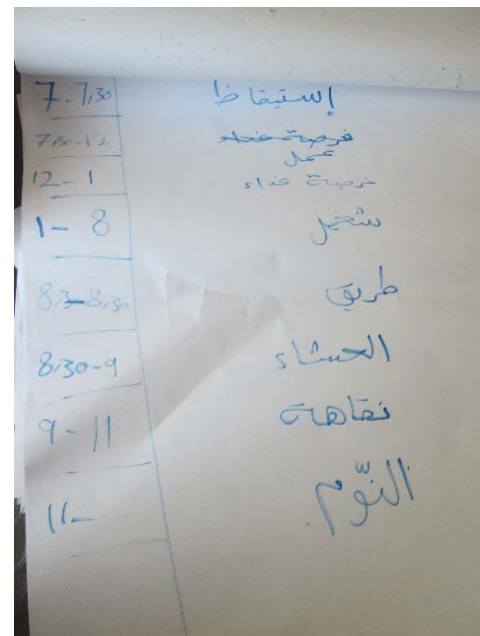 7-7,30 إستيقاظ
7,30-12 فرصة غداء
عمل
12-1 فرصة غداء
1-8 شغل
8,3-8,30 طريق
8,30-9 العشاء
9-11 نقاهة
11-... النّوم.